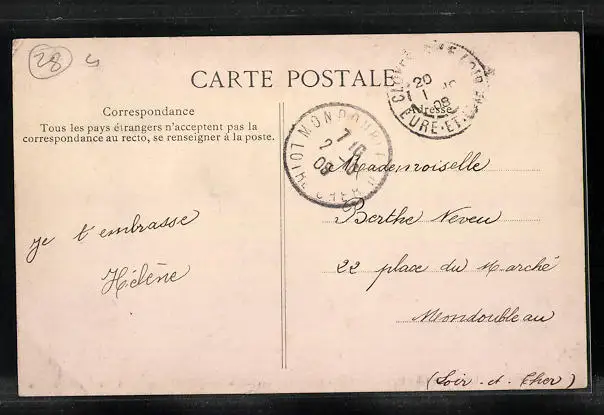 28
CARTE POSTALE
Correspondance
Tous les pays étrangers n'acceptent pas la
correspondance au recto, se renseigner à la poste.
Adresse
CLOYES
20
08
EURE-ET-LOIR
MONDOUBLEAU
7 10
2 - 10
08
LOIR-ET-CHER
Mademoiselle
Berthe Neveu
22 place du Marché
Mondoubleau
(Loir et Cher)
je t'embrasse
Hélène